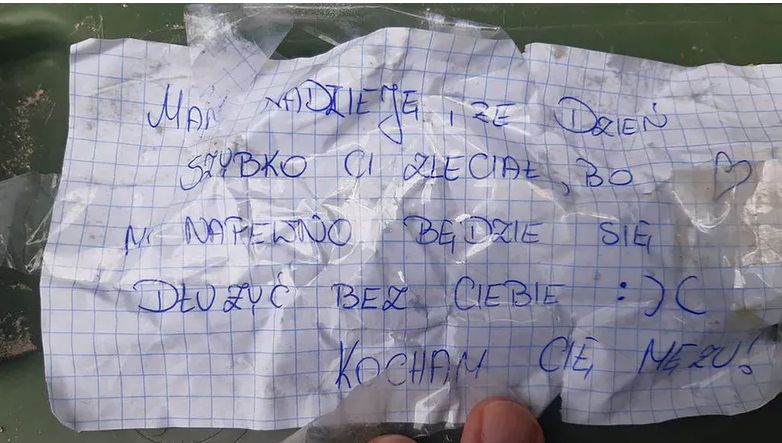 MAM NADZIEJĘ, ŻE DZIEŃ
SZYBKO CI ZLECIAŁ, BO ♡
MI NAPEWNO BĘDZIE SIĘ
DŁUŻYĆ BEZ CIEBIE :)(
KOCHAM CIĘ MĘŻU!